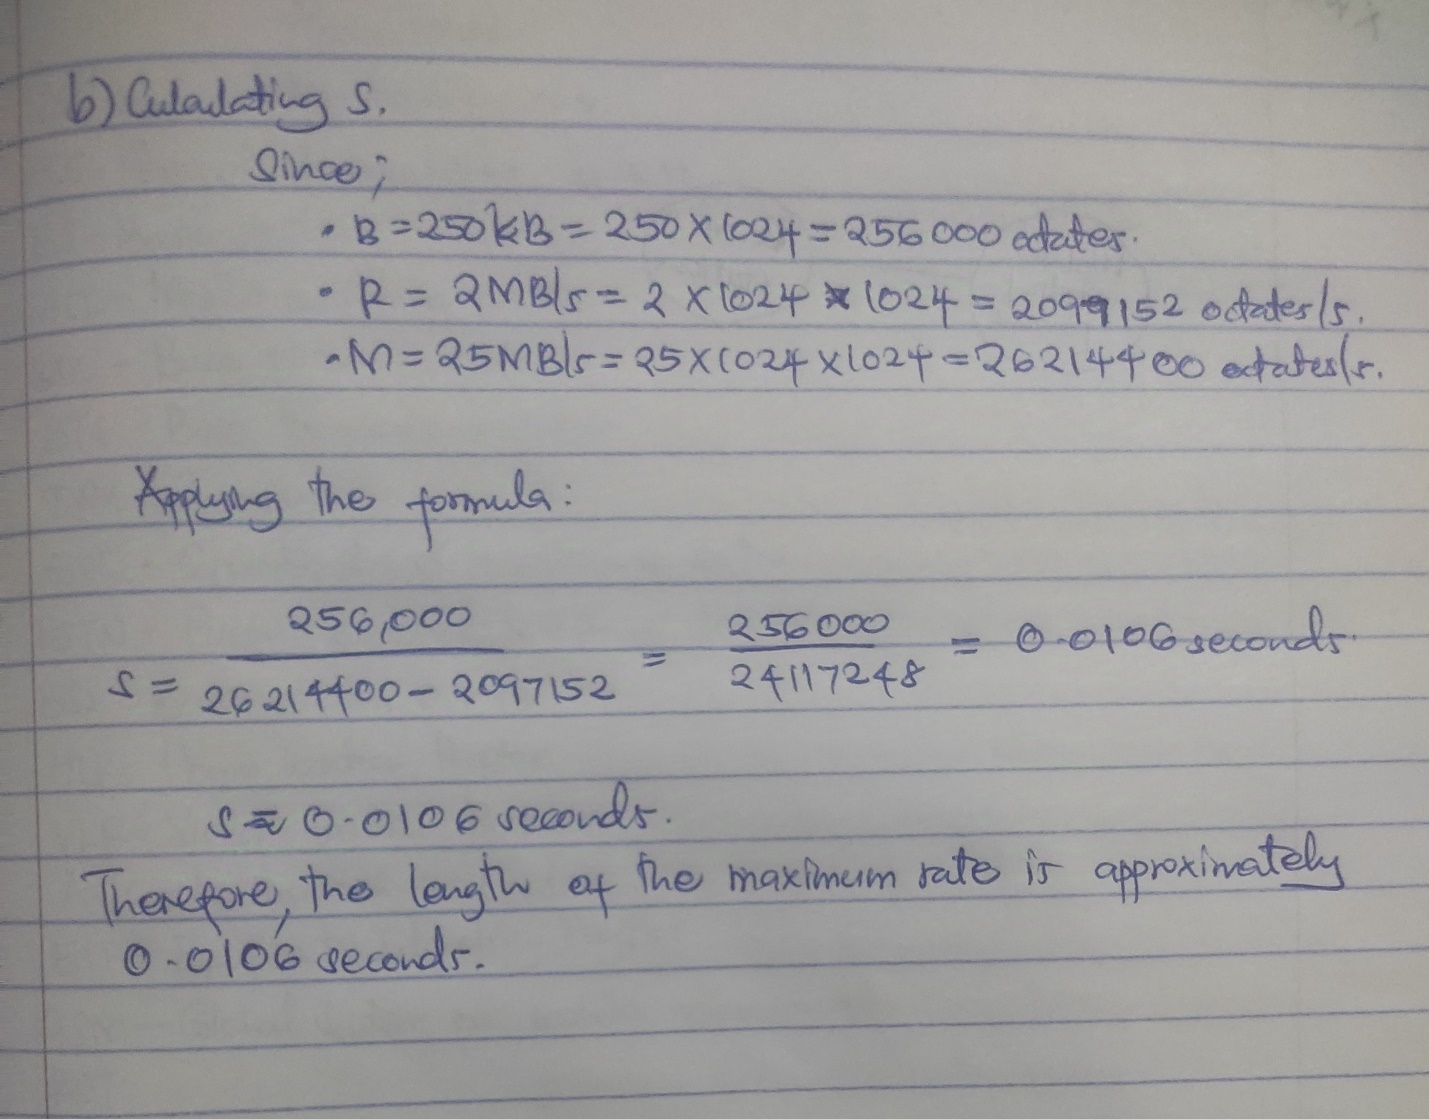 b) Calculating S.
Since;
• B = 250KB = 250 X 1024 = 256 000 octates.
• R = 2MB/s = 2 X 1024 X 1024 = 2099152 octates/s.
• M = 25MB/s = 25 X 1024 X 1024 = 26214400 octates/s.
Applying the formula:
256,000
S = ——— = ——— = 0.0106 seconds.
256000
26214400 - 2097152
24117248
S ≈ 0.0106 seconds.
Therefore, the length of the maximum rate is approximately
0.0106 seconds.